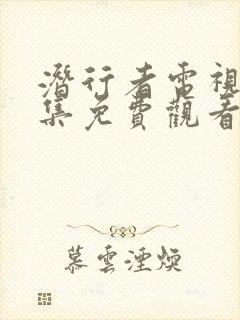 潛行者電視
集免費觀看
慕雲湮煙